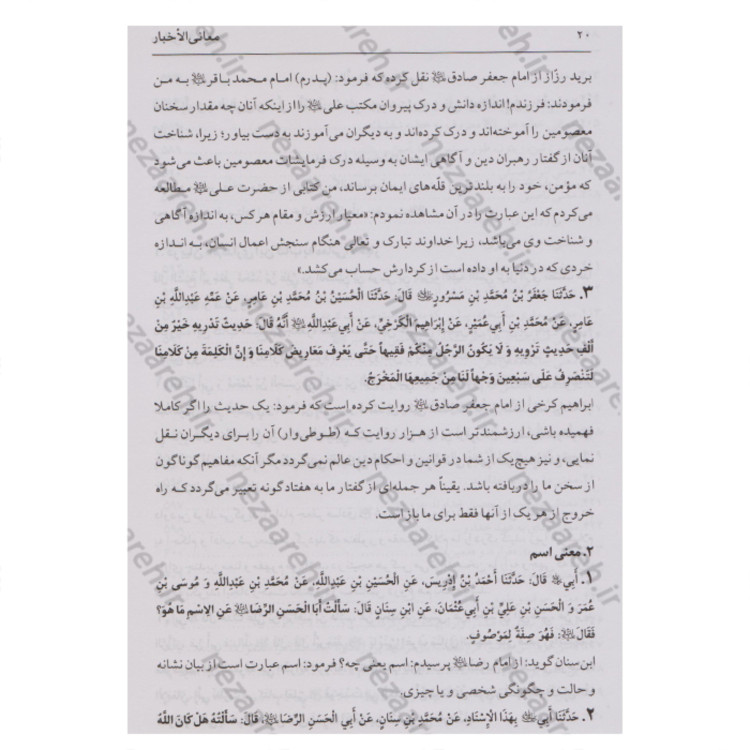 ۲۰ معانی الأخبار
برید رزّاز از امام جعفر صادق نقل کرده که فرمود: (پدرم) امام محمد باقر به من
فرمودند: فرزندم! اندازه دانش و درک پیروان مکتب علی را از اینکه آنان چه مقدار سخنان
معصومین را آموخته‌اند و درک کرده‌اند و به دیگران می‌آموزند به دست بیاور؛ زیرا، شناخت
آنان از گفتار رهبران دین و آگاهی ایشان به وسیله درک فرمایشات معصومین باعث می‌شود
که مؤمن، خود را به بلندترین قلّه‌های ایمان برساند، من کتابی از حضرت علی مطالعه
می‌کردم که این عبارت را در آن مشاهده نمودم: «معیار ارزش و مقام هر کس، به اندازه آگاهی
و شناخت وی می‌باشد، زیرا خداوند تبارک و تعالی هنگام سنجش اعمال انسان، به اندازه
خردی که در دنیا به او داده است از کردارش حساب می‌کشد.»
۳. حَدَّثَنَا جَعْفَرُ بْنُ مُحَمَّدِ بْنِ مَسْرُورٍ قَالَ: حَدَّثَنَا الْحُسَیْنُ بْنُ مُحَمَّدِ بْنِ عَامِرٍ، عَنْ عَمِّهِ عَبْدِاللَّهِ بْنِ
عَامِرٍ، عَنْ مُحَمَّدِ بْنِ أَبِي عُمَیْرٍ، عَنْ إِبْرَاهِیمَ الْکَرْخِيِّ، عَنْ أَبِي عَبْدِاللَّهِ أَنَّهُ قَالَ: حَدِیثٌ تَدْرِیهِ خَیْرٌ مِنْ
أَلْفِ حَدِیثٍ تَرْوِیهِ وَ لَا یَکُونُ الرَّجُلُ مِنْکُمْ فَقِیهاً حَتَّى یَعْرِفَ مَعَارِیضَ کَلَامِنَا وَ إِنَّ الْکَلِمَةَ مِنْ کَلَامِنَا
لَتَنْصَرِفُ عَلَى سَبْعِینَ وَجْهاً لَنَا مِنْ جَمِیعِهَا الْمَخْرَجُ.
ابراهیم کرخی از امام جعفر صادق روایت کرده است که فرمود: یک حدیث را اگر کاملا
فهمیده باشی، ارزشمندتر است از هزار روایت که (طوطی‌وار) آن را برای دیگران نقل
نمایی، و نیز هیچ یک از شما در قوانین و احکام دین عالم نمی‌گردد مگر آنکه مفاهیم گوناگون
از سخن ما را دریافته باشد. یقیناً هر جمله‌ای از گفتار ما به هفتاد گونه تعبیر می‌گردد که راه
خروج از هر یک از آنها فقط برای ما باز است.
۲. معنی اسم
۱. أَبِي قَالَ: حَدَّثَنَا أَحْمَدُ بْنُ إِدْرِیسَ، عَنِ الْحُسَیْنِ بْنِ عَبْدِاللَّهِ، عَنْ مُحَمَّدِ بْنِ عَبْدِاللَّهِ وَ مُوسَى بْنِ
عُمَرَ وَ الْحَسَنِ بْنِ عَلِيِّ بْنِ أَبِي عُثْمَانَ، عَنِ ابْنِ سِنَانٍ قَالَ: سَأَلْتُ أَبَا الْحَسَنِ الرِّضَا عَنِ الِاسْمِ مَا هُوَ؟
فَقَالَ: فَهُوَ صِفَةٌ لِمَوْصُوفٍ.
ابن سنان گوید: از امام رضا پرسیدم: اسم یعنی چه؟ فرمود: اسم عبارت است از بیان نشانه
و حالت و چگونگی شخصی و یا چیزی.
۲. حَدَّثَنَا أَبِي بِهَذَا الْإِسْنَادِ، عَنْ مُحَمَّدِ بْنِ سِنَانٍ، عَنْ أَبِي الْحَسَنِ الرِّضَا، قَالَ: سَأَلْتُهُ هَلْ کَانَ اللَّهُ
nezaareh.ir